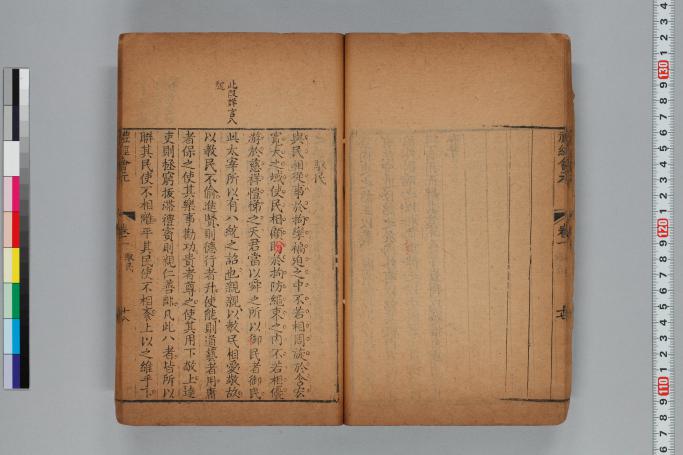 禮經會元
卷一
馭民
與民相從事於拘攣褊迫之中不若相周旋於含宏
寬大之域使民相 於拘防繩束之內不若相優
游於慈祥愷悌之天君當以舜之所以御民者御民
此太宰所以有八統之詔也親親以教民相愛敬故
以教民不偷進賢則德行者升使能則道藝者用庸
者保之使其樂事勸功貴者尊之使其用下敬上達
吏則拯窮拔滯禮賓則親仁善鄰凡此八者皆所以
聯其民使不相離乎其民使不相紊上以之維乎下
此段詳言八
統
禮經會元
卷一
馭民